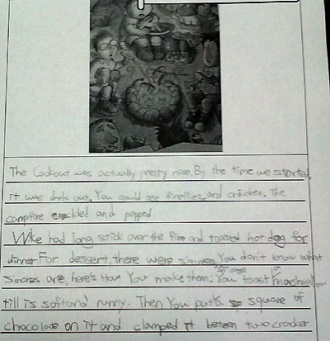 The Cookout was actually pretty nice. By the time we started,
it was dark out. You could see fireflies, and crickets. The
campfire crackled and popped
We had long stick over the fire and toasted hot dog for
dinner For dessert, there were smores. You don't know what
Smores are, here's How You make them. You toast marshmallow
till is soft and runny. Then You put a square of
chocolate on it and clamped it between two cracker